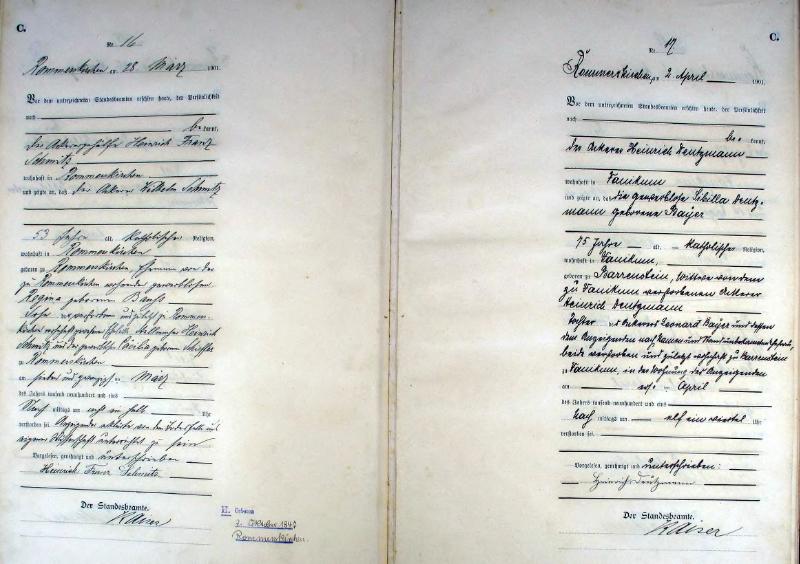 C.
Nr. 16
Rommerskirchen am 28 März 1901.
Vor dem unterzeichneten Standesbeamten erschien heute, der Persönlichkeit
nach
be kannt,
der Ackergehülfe Heinrich Franz
Schmitz
wohnhaft in Rommerskirchen
und zeigte an, daß der Ackerer Wilhelm Schmitz
53 Jahre alt, katholischer Religion,
wohnhaft in Rommerskirchen
geboren zu Rommerskirchen, Ehemann von der
zu Rommerskirchen wohnenden gewerblosen
Regina geborene
Sohn der zuletzt zu Rommers-
kirchen wohnhaft gewesenen Eheleute Heinrich
Schmitz und der gewerblosen Cäcilia geborene
zu Rommerskirchen
am sieben und zwanzigsten März
des Jahres tausend neunhundert und eins
Nach mittags um acht ein halb Uhr
verstorben sei. Anzeigender erklärte von dem Sterbefalle aus
eigener Wissenschaft unterrichtet zu sein
Vorgelesen, genehmigt und unterschrieben
Heinrich Franz Schmitz
Der Standesbeamte.
Kaiser
H. Geboren
2. Oktober 1847
Rommerskirchen.
C.
Nr. 17
Rommerskirchen, am 2 April 1901.
Vor dem unterzeichneten Standesbeamten erschien heute, der Persönlichkeit
nach
be kannt,
der Ackerer Heinrich Deutzmann
wohnhaft in Vanikum
und zeigte an, daß die gewerblose Sibilla Deutz-
mann geborene Bayer
75 Jahre alt, katholischer Religion,
wohnhaft in Vanikum,
geboren zu Barrenstein, Wittwe von dem
zu Vanikum verstorbenen Ackerer
Heinrich Deutzmann
Tochter des Ackerers Leonard Bayer und dessen
dem Anzeigenden nach Namen und Stand unbekannten Ehefrau,
beide verstorben und zuletzt wohnhaft zu Barrenstein
zu Vanikum, in der Wohnung des Anzeigenden
am ersten April
des Jahres tausend neunhundert und eins
Nach mittags um elf ein viertel Uhr
verstorben sei.
Vorgelesen, genehmigt und unterschrieben:
Heinrich Deutzmann
Der Standesbeamte.
Kaiser